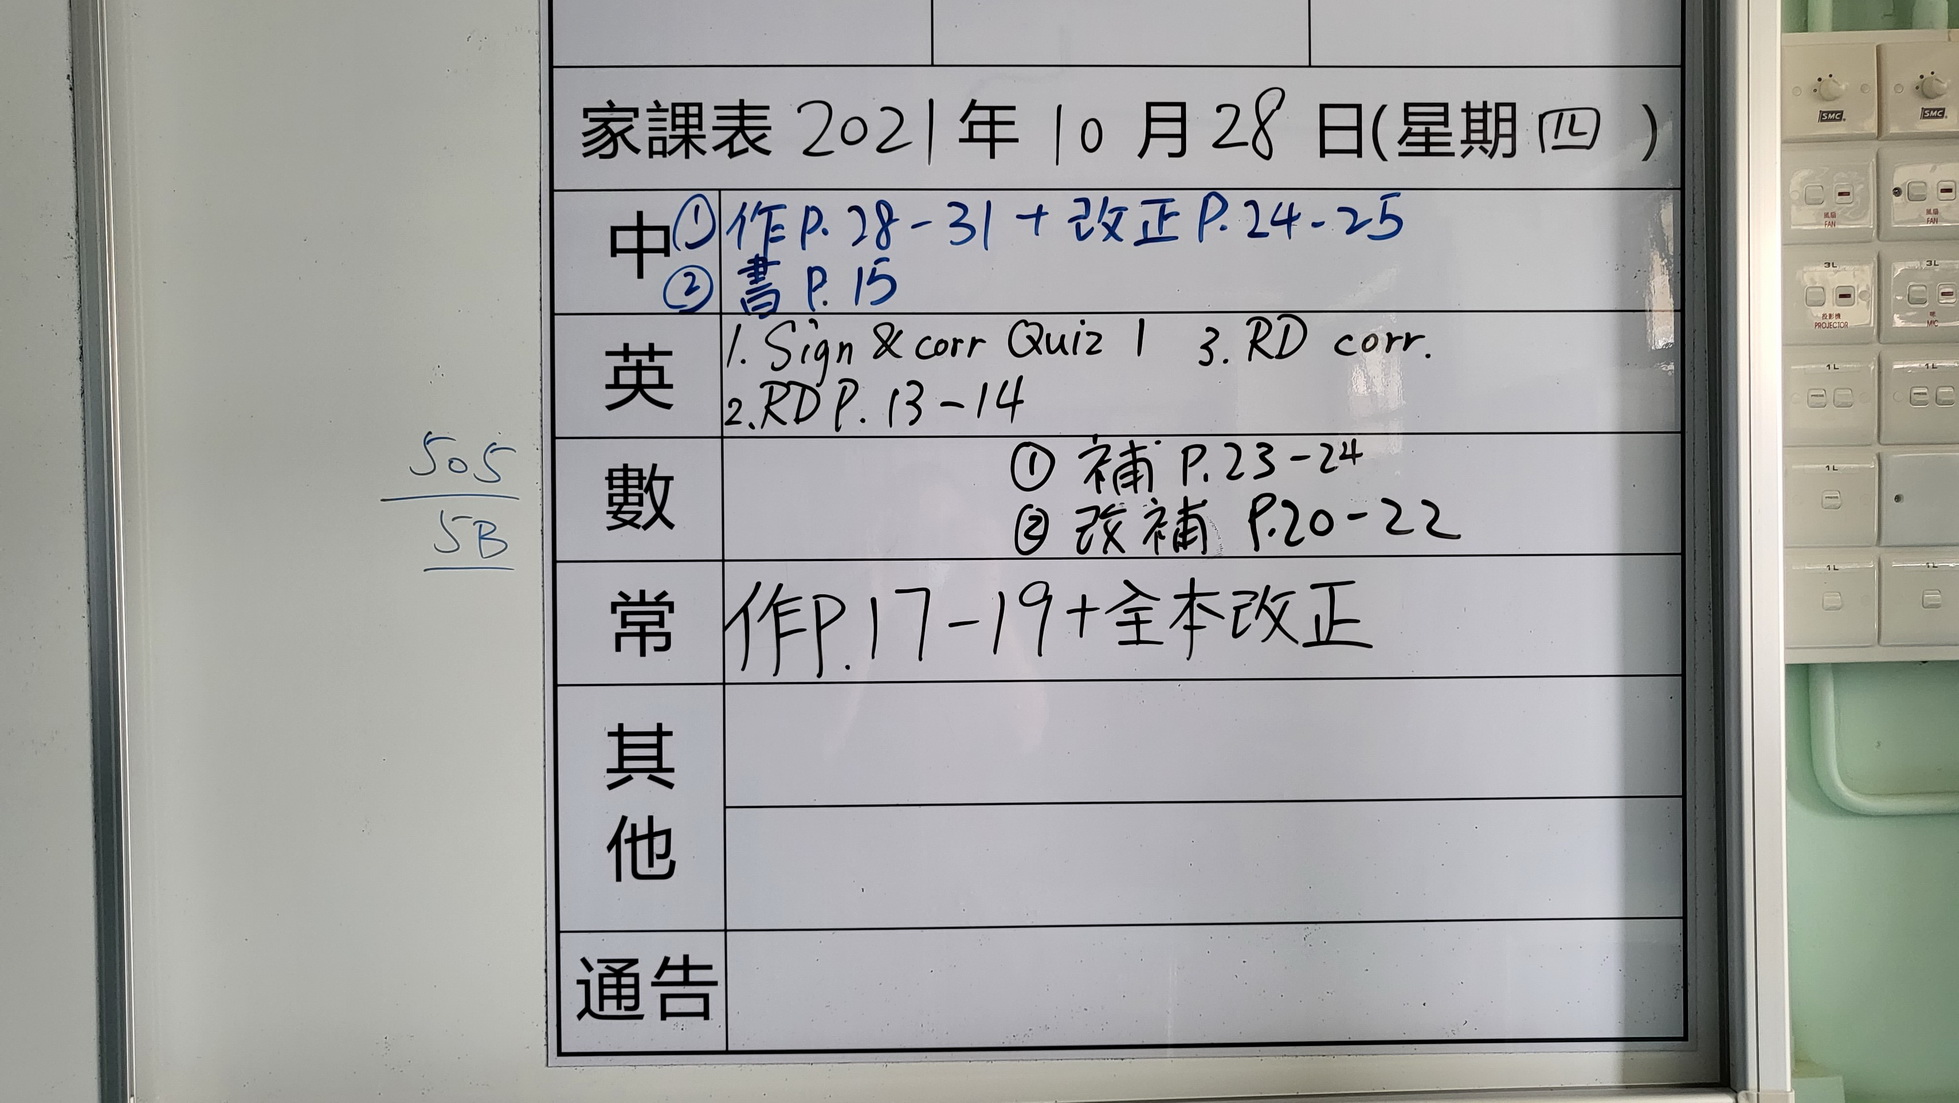 家課表 2021 年 10 月 28 日(星期 四 )
中 ① 作P. 28-31 + 改正P. 24-25
② 書 P. 15
英 1. Sign & corr Quiz 1 3. RD corr.
2. RD P. 13-14
數 ① 補 P. 23-24
② 改補 P.20-22
常 作P. 17-19+全本改正
其他
通告
505
5B
SMC
SMC
風扇
FAN
風扇
FAN
3L
3L
投影機
PROJECTOR
咪
MIC
1L
1L
1L
1L
1L
1L